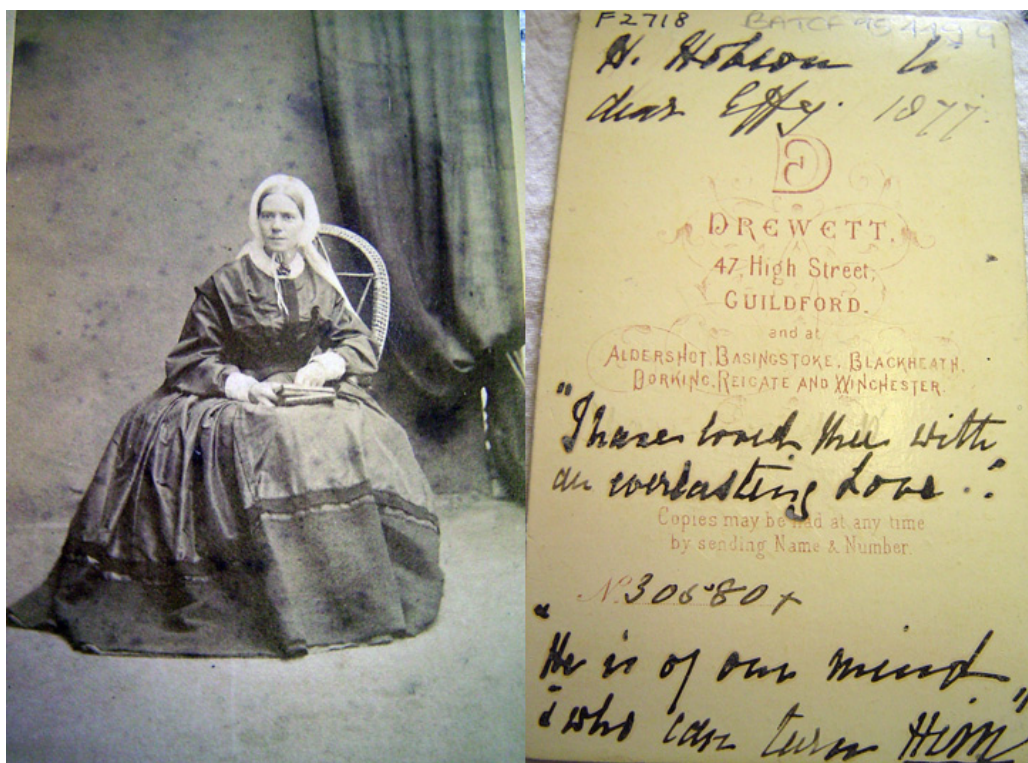 F2718 BATCH 95449
H. Hobson to
dear Effy. 1877.
D
DREWETT.
47, High Street,
GUILDFORD.
and at
ALDERSHOT, BASINGSTOKE, BLACKHEATH,
DORKING, REIGATE AND WINCHESTER.
"I have loved thee with
an everlasting Love."
Copies may be had at any time
by sending Name & Number.
No. 30680+
"He is of one mind
& who can turn Him"